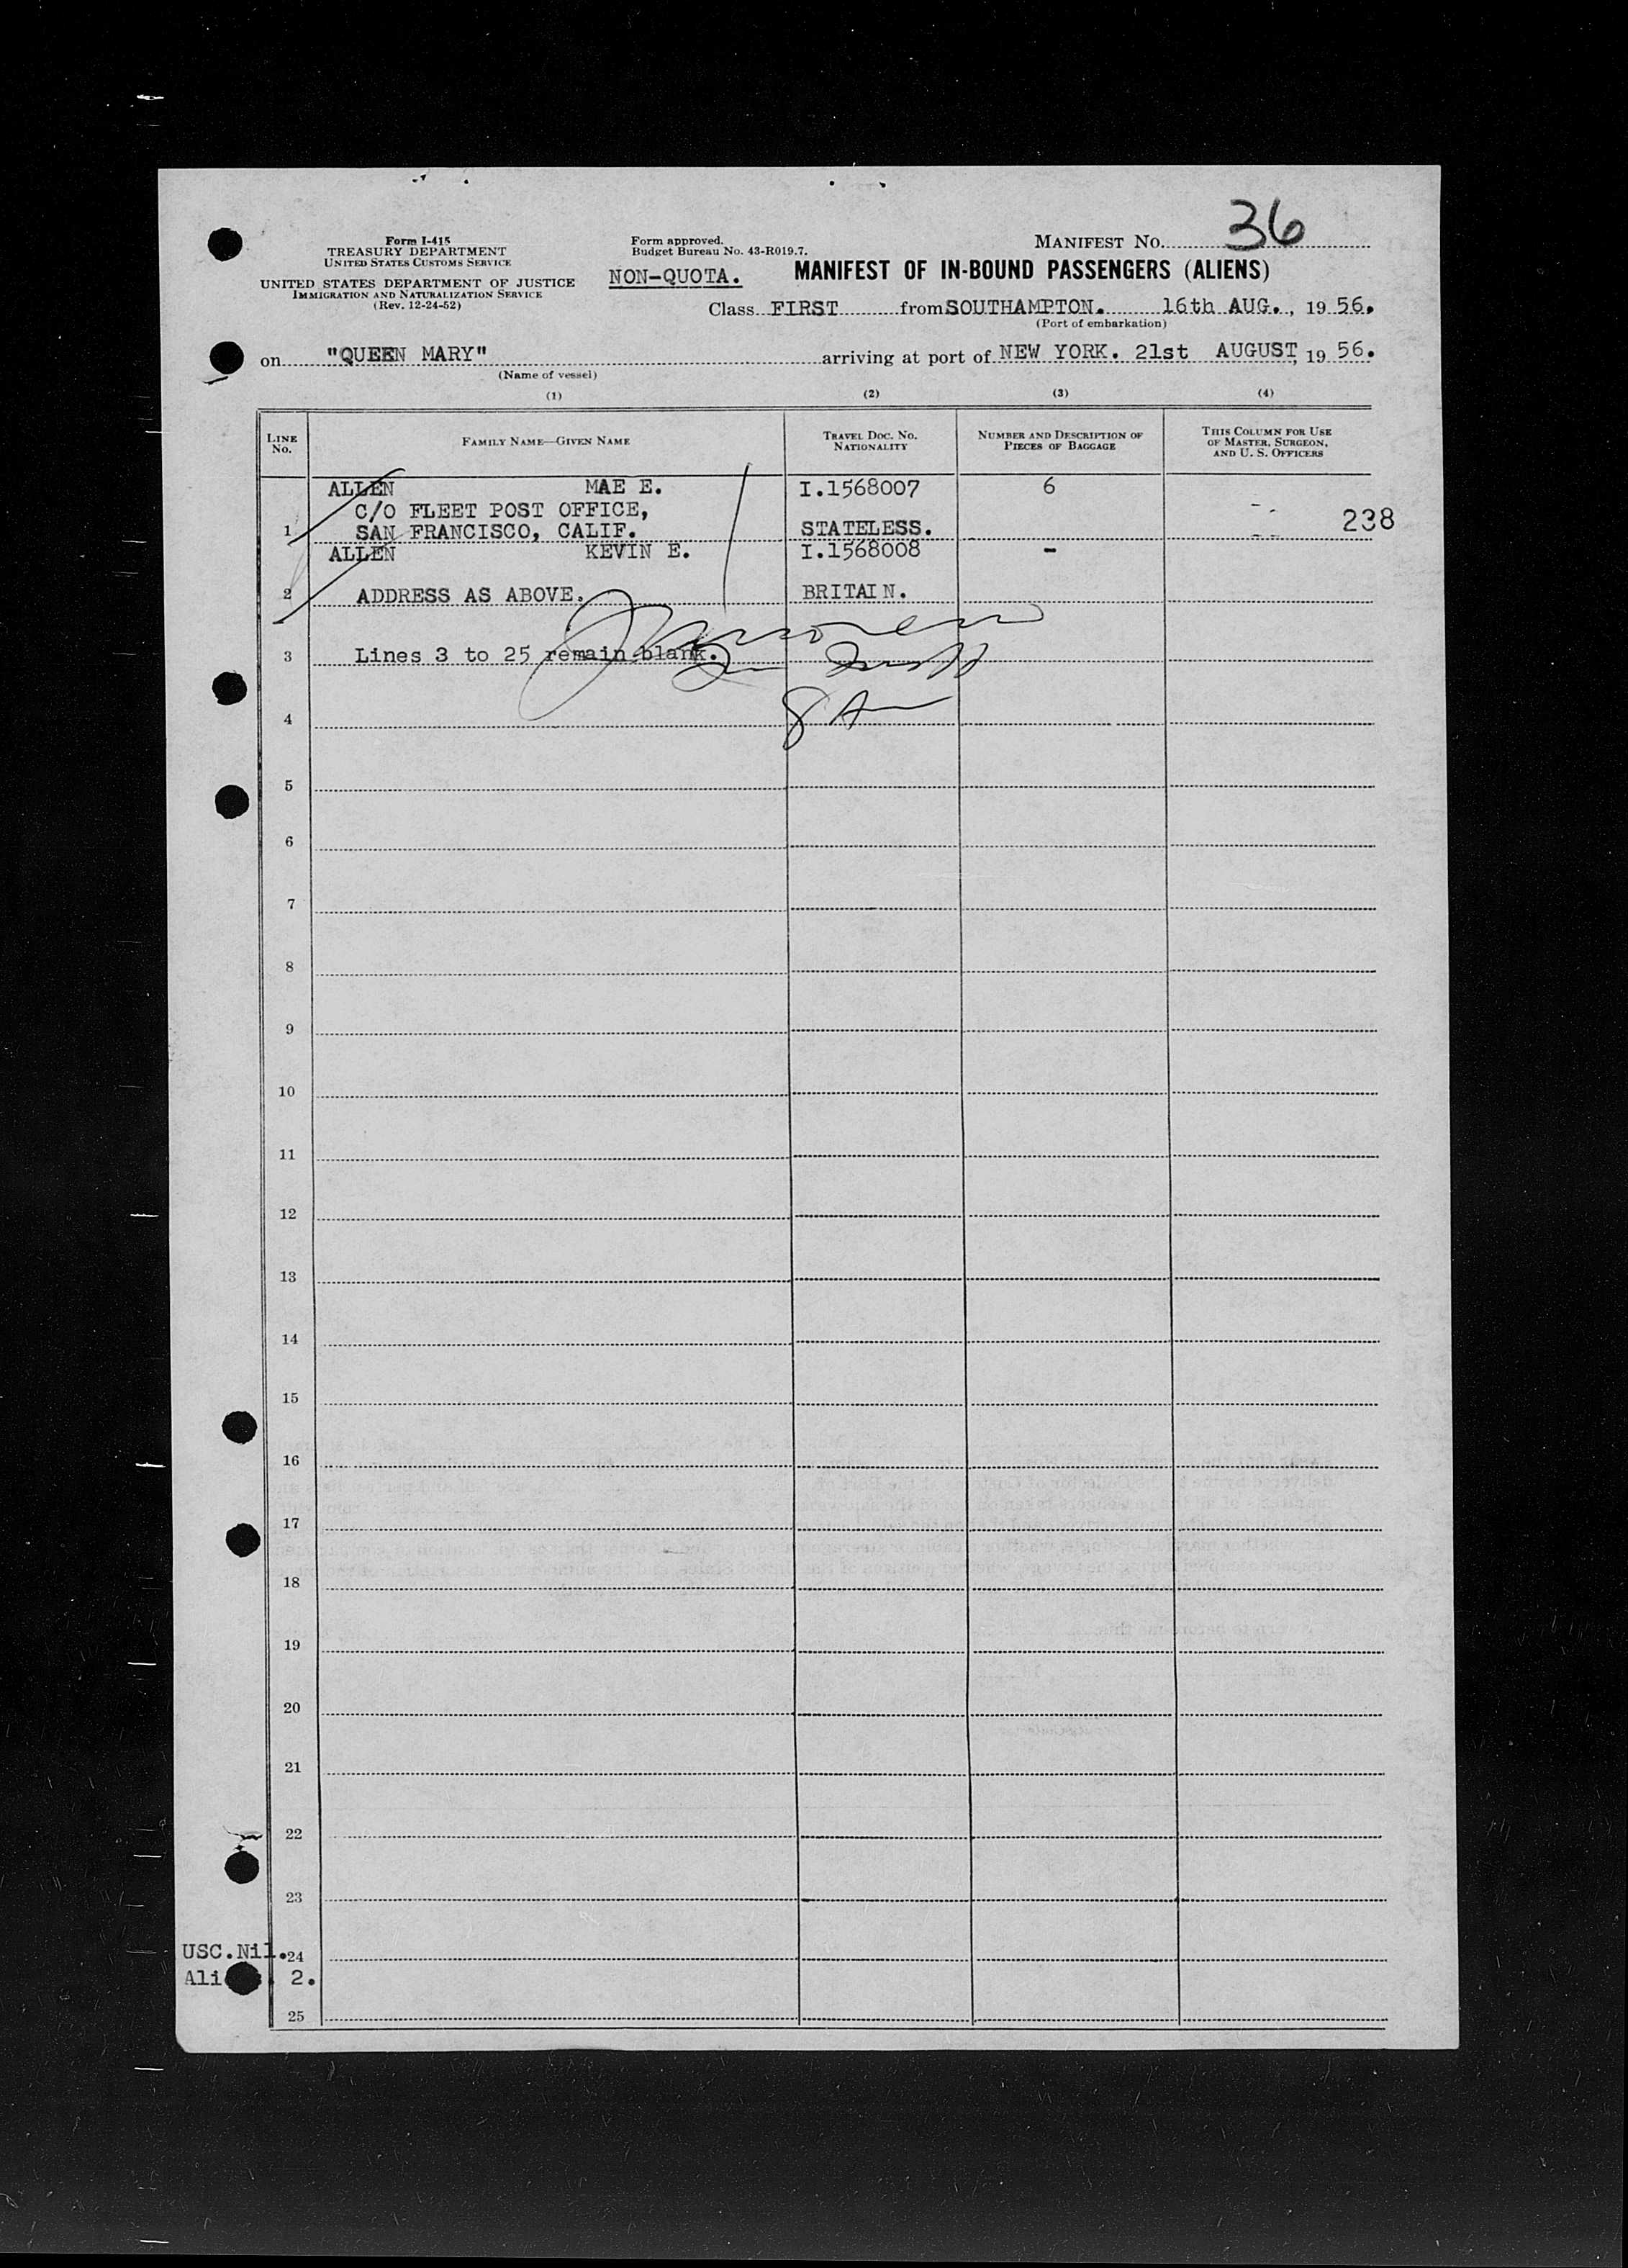 36
Form I-415
TREASURY DEPARTMENT
UNITED STATES CUSTOMS SERVICE
UNITED STATES DEPARTMENT OF JUSTICE
IMMIGRATION AND NATURALIZATION SERVICE
(Rev. 12-24-52)
Form approved.
Budget Bureau No. 43-R019.7.
MANIFEST NO.
NON-QUOTA. MANIFEST OF IN-BOUND PASSENGERS (ALIENS)
Class FIRST from SOUTHAMPTON. 16th AUG., 19 56.
(Port of embarkation)
on "QUEEN MARY" arriving at port of NEW YORK. 21st AUGUST, 19 56.
(Name of vessel)
(1) (2) (3) (4)
LINE NO. FAMILY NAME—GIVEN NAME TRAVEL DOC. NO. NATIONALITY NUMBER AND DESCRIPTION OF PIECES OF BAGGAGE THIS COLUMN FOR USE OF MASTER, SURGEON, AND U. S. OFFICERS
ALLEN MAE E. I.1568007 6
C/O FLEET POST OFFICE, 238
1 SAN FRANCISCO, CALIF. STATELESS.
ALLEN KEVIN E. I.1568008 -
2 ADDRESS AS ABOVE. BRITAIN.
3 Lines 3 to 25 remain blank.
4
5
6
7
8
9
10
11
12
13
14
15
16
17
18
19
20
21
22
23
USC.Nil. 24
2.
25